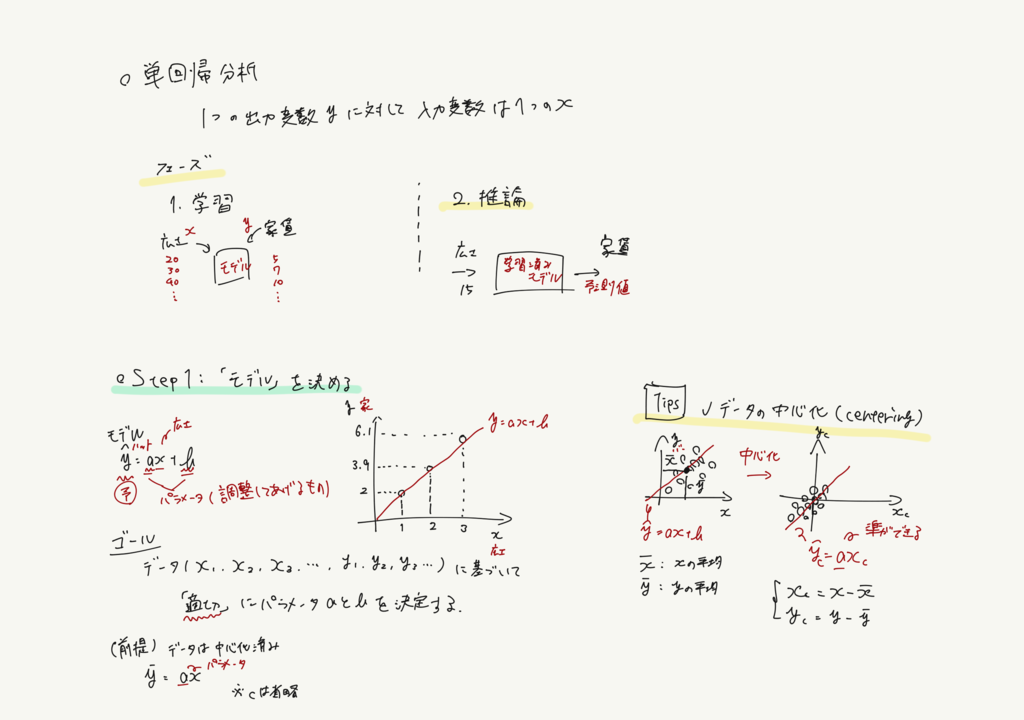 ○ 単回帰分析
1つの出力変数 y に対して 入力変数は1つの x
フェーズ
1. 学習
x
y
広さ
家賃
モデル
20
30
40
⋮
5
7
10
⋮
2. 推論
広さ
15
学習済み
モデル
家賃
予測値
○ Step1:「モデル」を決める
モデル
ハット
広さ
ŷ = ax + b
予
パラメータ(調整してあげるもの)
y 家
6.1
3.9
2
1 2 3
x
広さ
y=ax+b
ゴール
データ(x₁, x₂, x₃, …, y₁, y₂, y₃ …)に基づいて
「適切」にパラメータaとbを決定する.
(前提) データは中心化済み
パラメータ
ȳ = ax
※ c は省略
Tips
✓ データの中心化 (centering)
y
x̄
ȳ
x
ŷ=ax+b
中心化
yc
xc
ŷc=axc
x̄ : xの平均
ȳ : yの平均
xc = x − x̄
yc = y − ȳ